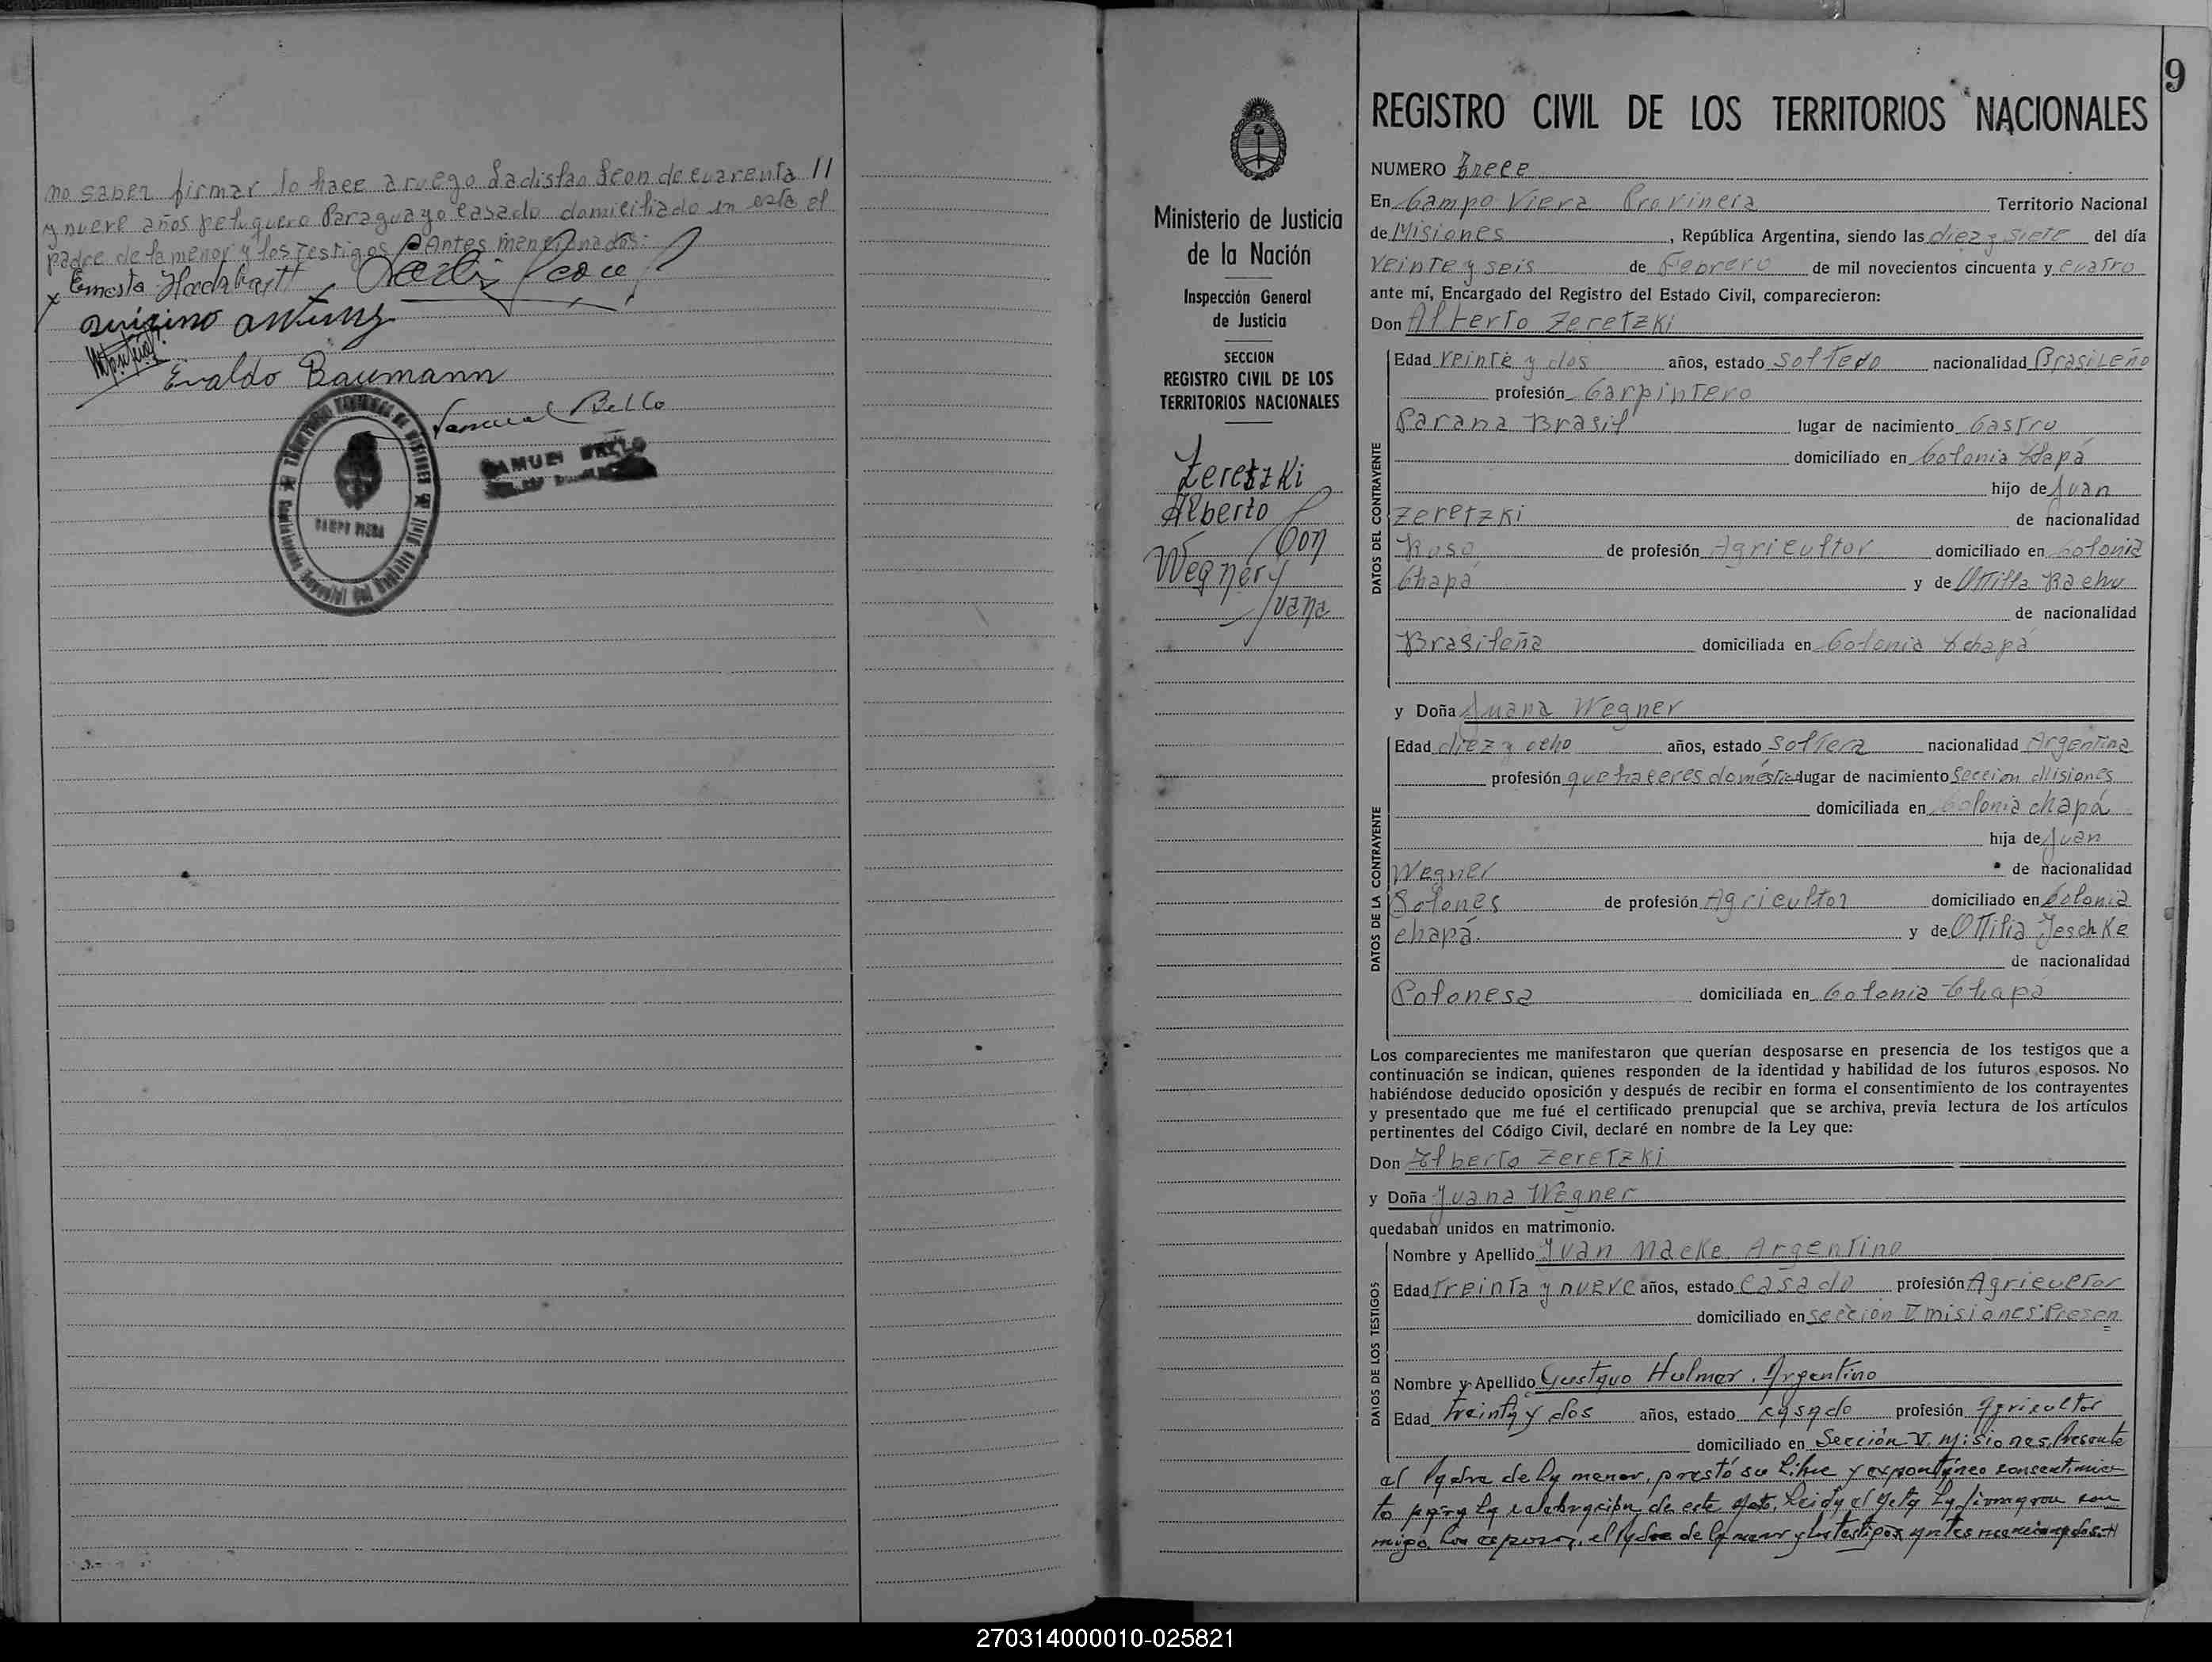 no saber firmar lo hace a ruego Ladislao Leon de cuarenta //
y nueve años peluquero Paraguayo casado domiciliado en esta el
padre de la menor y los testigos Antes mencionados:
Ernesta
Evaldo Baumann
Samuel Bello
SAMUEL BELLO
CAMPO VIERA
9
Ministerio de Justicia
de la Nación
Inspección General
de Justicia
SECCION
REGISTRO CIVIL DE LOS
TERRITORIOS NACIONALES
Zeretzki
Alberto
Con
Wegner
Juana
REGISTRO CIVIL DE LOS TERRITORIOS NACIONALES
NUMERO Trece
En Campo Viera Provincia Territorio Nacional
de Misiones, República Argentina, siendo las diez y siete del día
veinte y seis de Febrero de mil novecientos cincuenta y cuatro
ante mí, Encargado del Registro del Estado Civil, comparecieron:
Don Alberto Zeretzki
DATOS DEL CONTRAYENTE
Edad veinte y dos años, estado soltero nacionalidad Brasileño
profesión Carpintero
Parana Brasil lugar de nacimiento Castro
domiciliado en Colonia Chapá
hijo de Juan
Zeretzki de nacionalidad
Ruso de profesión Agricultor domiciliado en Colonia
Chapá y de
de nacionalidad
Brasileña domiciliada en Colonia Chapá
y Doña Juana Wegner
DATOS DE LA CONTRAYENTE
Edad diez y ocho años, estado soltera nacionalidad Argentina
profesión quehaceres domestico lugar de nacimiento Seccion Misiones
domiciliada en Colonia chapá
hija de Juan
Wegner de nacionalidad
Polones de profesión Agricultor domiciliado en Colonia
chapá. y de Ottilia Jeschke
de nacionalidad
Polonesa domiciliada en Colonia Chapá
Los comparecientes me manifestaron que querían desposarse en presencia de los testigos que a
continuación se indican, quienes responden de la identidad y habilidad de los futuros esposos. No
habiéndose deducido oposición y después de recibir en forma el consentimiento de los contrayentes
y presentado que me fué el certificado prenupcial que se archiva, previa lectura de los artículos
pertinentes del Código Civil, declaré en nombre de la Ley que:
Don Alberto Zeretzki
y Doña Juana Wegner
quedaban unidos en matrimonio.
DATOS DE LOS TESTIGOS
Nombre y Apellido Juan Macke. Argentino
Edad treinta y nueve años, estado casado profesión Agricultor
domiciliado en sección V misiones. Presen
Nombre y Apellido Gustavo Hulmer. Argentino
Edad treinta y dos años, estado casado profesión Agricultor
domiciliado en Sección V. Misiones. Presente
el padre de la menor, prestó su libre y expontáneo consentimien
to para la celebración de este acto. Leida el acta la firmaron con
migo los esposos, el padre de la menor y los testigos antes mencionados.
270314000010-025821